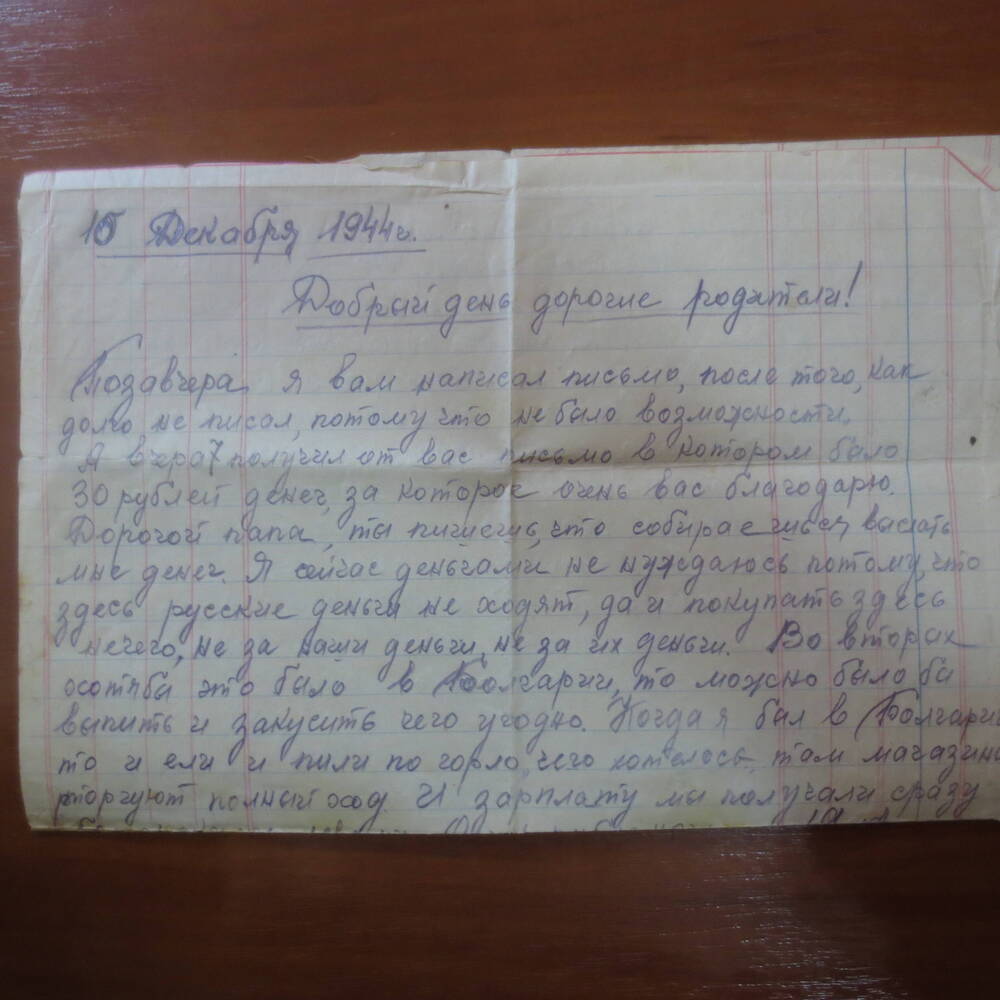 15 Декабря 1944г.
Добрый день дорогие родители!
Позавчера я вам написал письмо, после того, как
долго не писал, потому что не было возможности.
А вчера получил от вас письмо в котором было
30 рублей денег, за которое очень вас благодарю.
Дорогой папа, ты пишешь, что собираешься выслать
мне денег. Я сейчас деньгами не нуждаюсь потому, что
здесь русские деньги не ходят, да и покупать здесь
нечего, не за наши деньги, не за их деньги. Во вторых
если ба это было в Болгарии, то можно было ба
выпить и закусить чего угодно. Когда я бал в Болгарии
то и ели и пили по горло, чего хотелось, там магазины
торгуют полный ход. И зарплату мы получали сразу